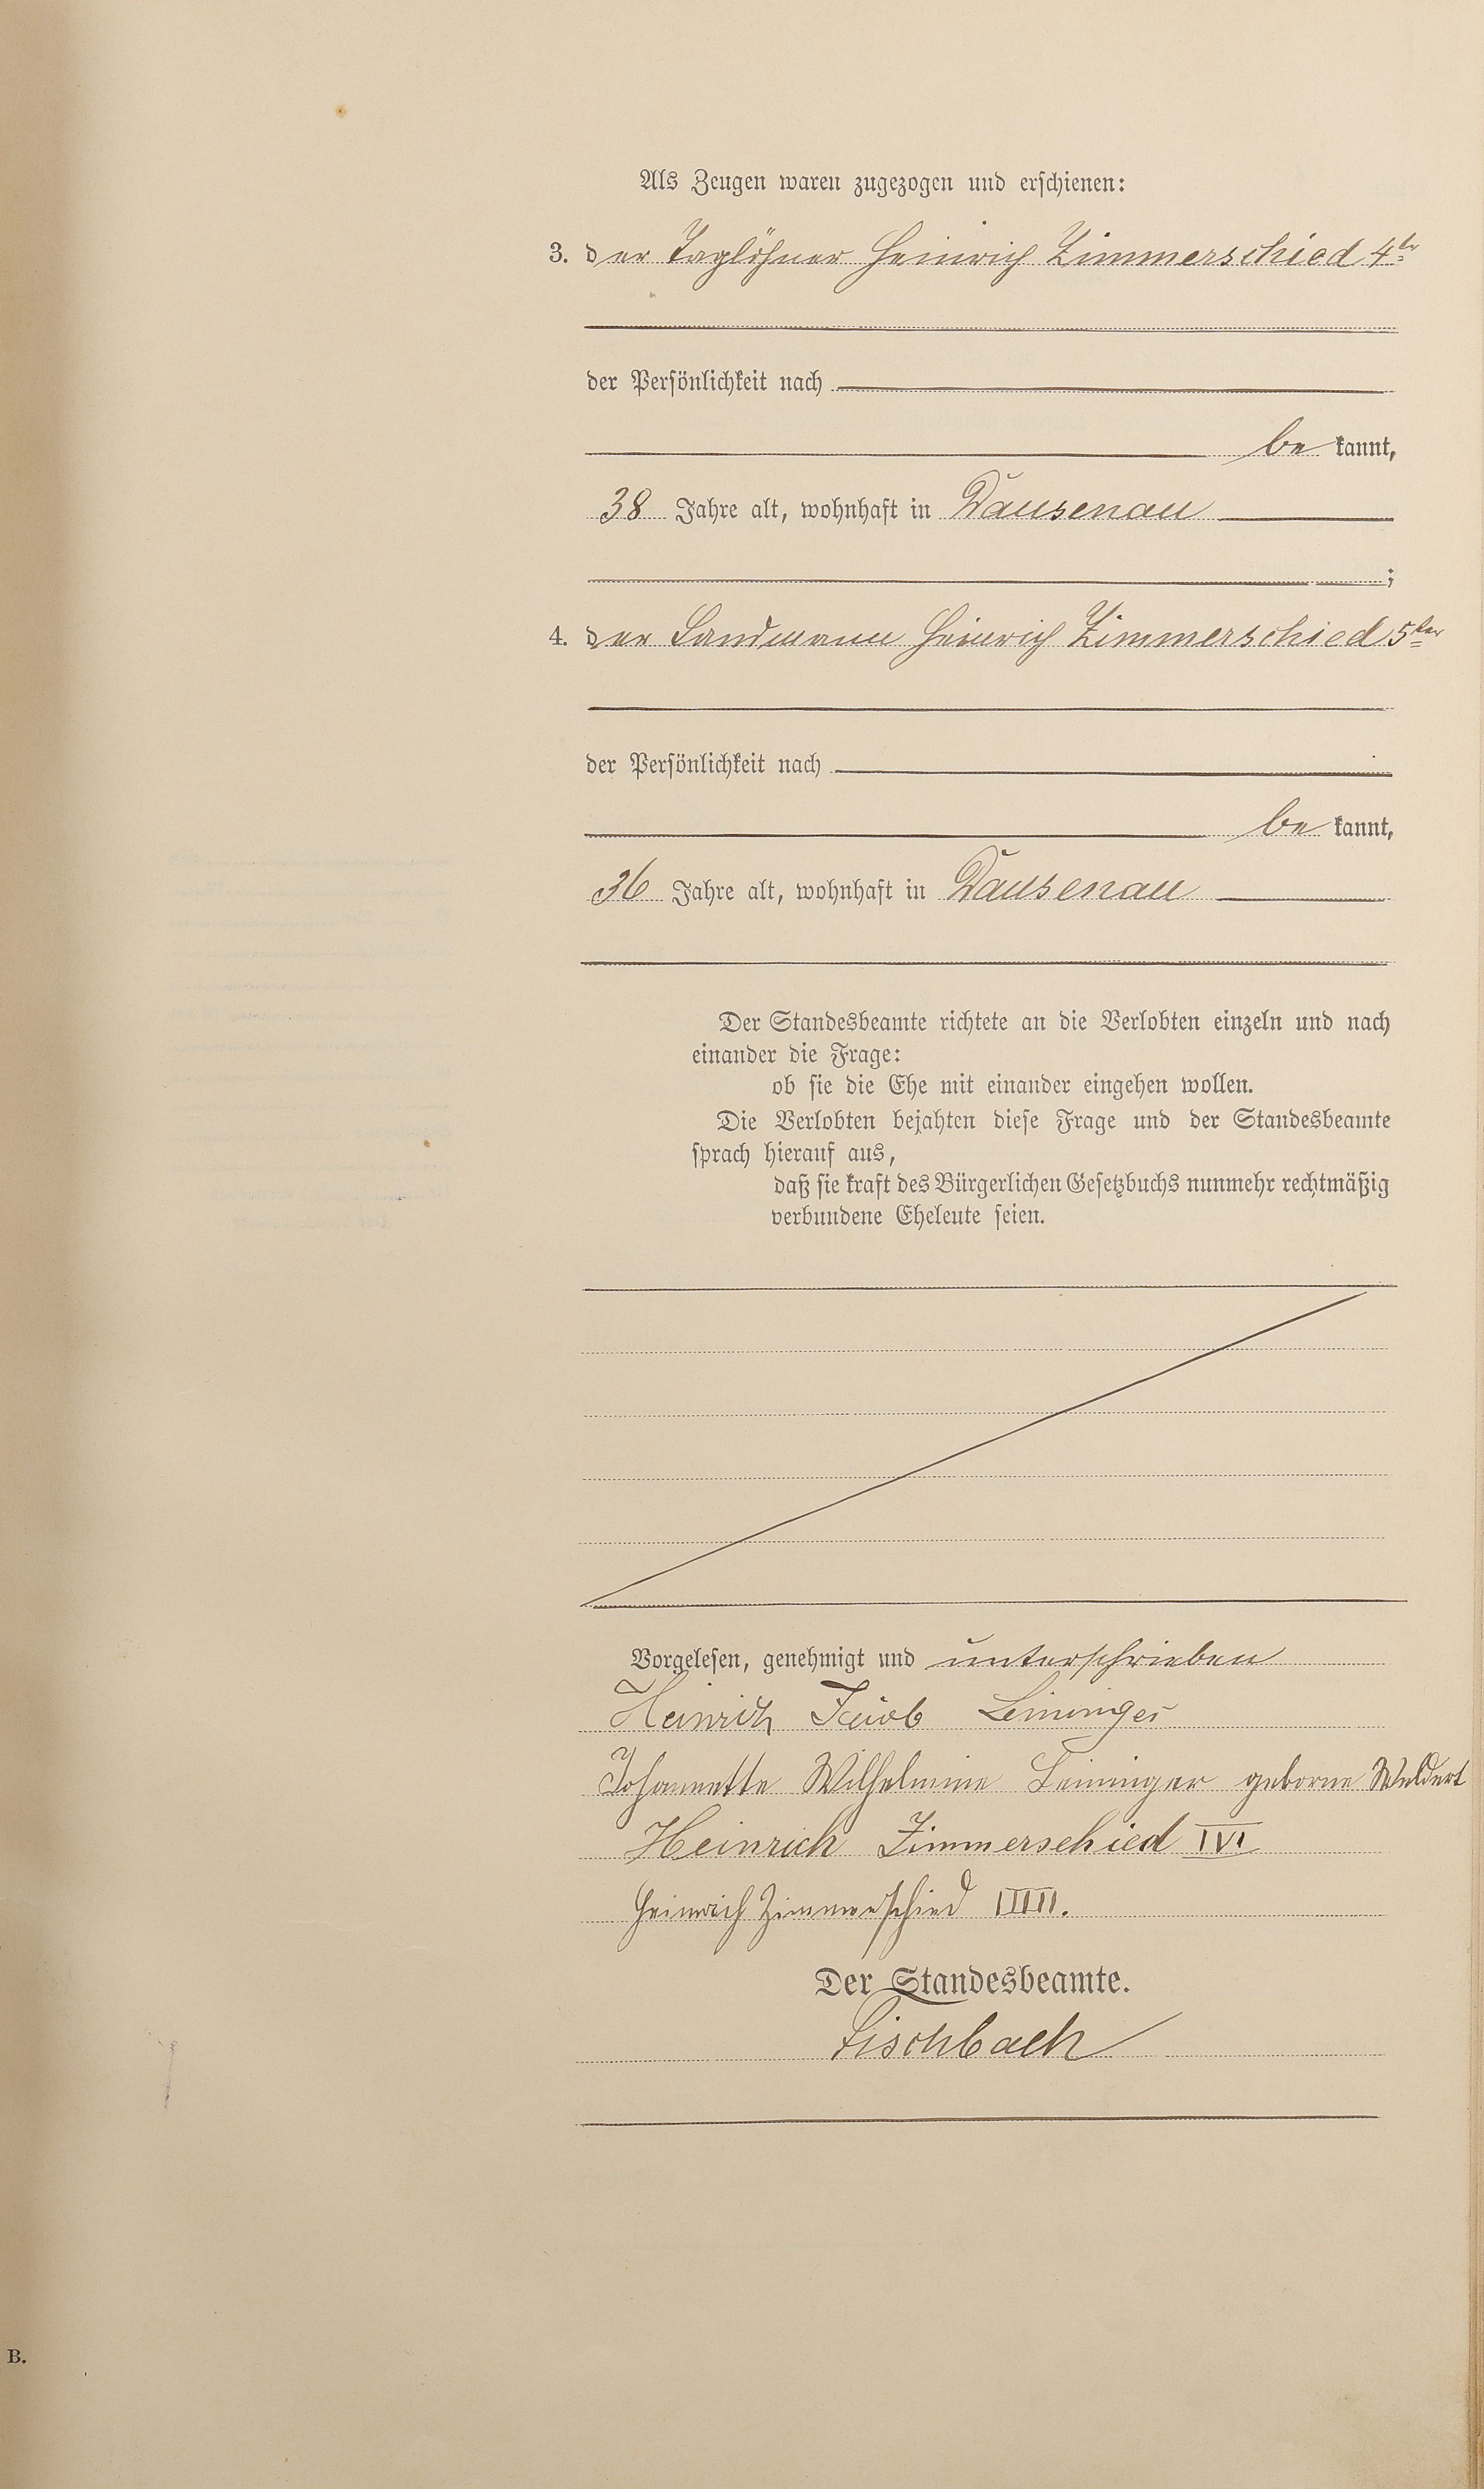 Als Zeugen waren zugezogen und erschienen:
3. der Taglöhner Heinrich Zimmerschied 4ter
der Persönlichkeit nach
be kannt,
38 Jahre alt, wohnhaft in Dausenau
;
4. der Landmann Heinrich Zimmerschied 5ter
der Persönlichkeit nach
be kannt,
36 Jahre alt, wohnhaft in Dausenau
Der Standesbeamte richtete an die Verlobten einzeln und nach
einander die Frage:
ob sie die Ehe mit einander eingehen wollen.
Die Verlobten bejahten diese Frage und der Standesbeamte
sprach hierauf aus,
daß sie kraft des Bürgerlichen Gesetzbuchs nunmehr rechtmäßig
verbundene Eheleute seien.
Vorgelesen, genehmigt und unterschrieben
Heinrich Jacob Leininger
Johannette Wilhelmine Leininger geborne Weldert
Heinrich Zimmerschied IVI
Heinrich Zimmerschied IIIII.
Der Standesbeamte.
Fischbach
B.